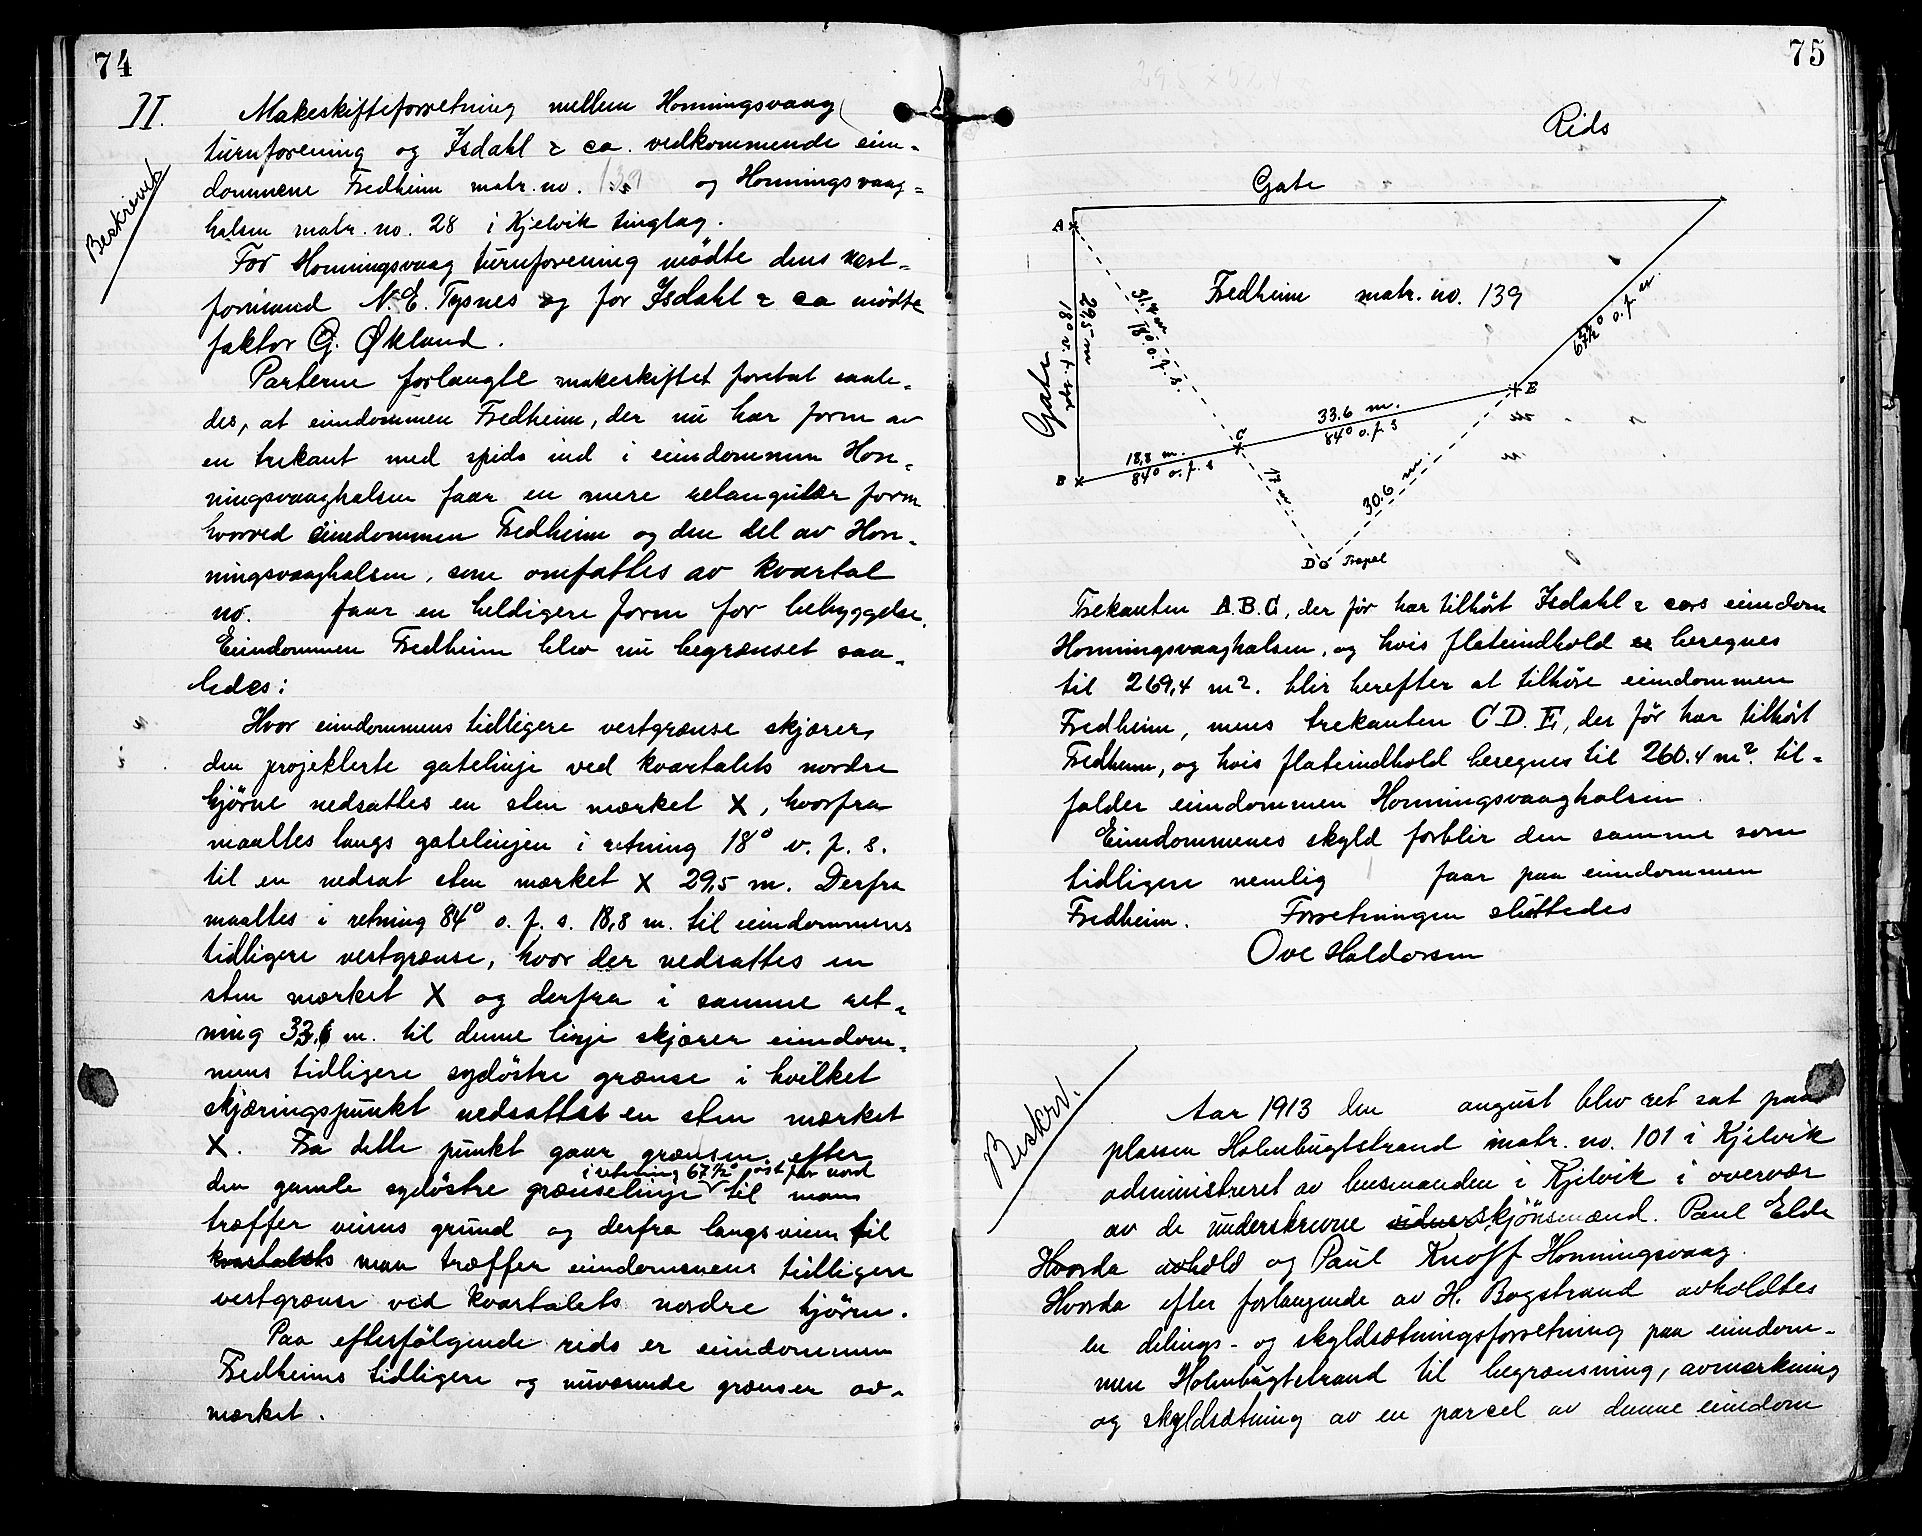 74
II. Makeskifteforretning mellem Honningsvaag
turnforening og Isdahl & co. vedkommende eien-
Beskrevet
dommene Fredheim matr. no. 139 og Honningsvaag-
halsen matr. no. 28 i Kjelvik tinglag.
For Honningsvaag turnforening mödte dens næst-
formand N. E. Tysnes og for Isdahl & co mödte
faktor G. Økland.
Parterne forlangte makeskiftet foretat saale-
des, at eiendommen Fredheim, der nu har form av
en trekant med spids ind i eiendommen Hon-
ningsvaaghalsen faar en mere retangulær form
hvorved eiendommen Fredheim og den del av Hon-
ningsvaaghalsen, som omfattes av kvartal
no. faar en heldigere form for bebyggelse.
Eiendommen Fredheim blev nu begrænset saa-
ledes:
Hvor eiendommens tidligere vestgrænse skjærer
den projekterte gatelinje ved kvartalets nordre
hjörne nedsattes en sten mærket X, hvorfra
maaltes langs gatelinjen i retning 18° v. f. s.
til en nedsat sten mærket X 29,5 m. Derfra
maaltes i retning 84° o. f. s. 18,8 m. til eiendommens
tidligere vestgrænse, hvor der nedsattes en
sten mærket X og derfra i samme ret-
ning 33,6 m. til denne linje skjærer eiendom-
mens tidligere sydöstre grænse i hvilket
skjæringspunkt nedsattes en sten mærket
X. Fra dette punkt gaar grænsen efter
i retning 67½° ost for nord
den gamle sydöstre grænselinje til man
træffer veiens grund og derfra langs veien til
kvartalets man træffer eiendommens tidligere
vestgrænse ved kvartalets nordre hjörne.
Paa efterfölgende rids er eiendommen
Fredheims tidligere og nuværende grænser av-
mærket.
75
Rids
Gate
A
Fredheim matr. no. 139
31.4 m
18° o. f. s.
29,5 m
18° v. f. syd
Gate
67½° o. f. n
E
33.6 m.
84° o. f. s
C
18,8 m.
84° o. f. s
B
17 m
30.6 m.
D
Trekanten A.B.C, der för har tilhört Isdahl & co's eiendom
Honningsvaaghalsen, og hvis flateindhold er beregnes
til 269,4 m². blir herefter at tilhöre eiendommen
Fredheim, mens trekanten C D. E, der för har tilhört
Fredheim, og hvis flateindhold beregnes til 260.4 m². til-
falder eiendommen Honningsvaaghalsen.
Eiendommenes skyld forblir den samme som
tidligere nemlig faar paa eiendommen
Fredheim. Forretningen sluttedes
Ove Haldorsen
Beskrev.
Aar 1913 den august blev ret sat paa
plassen Holmbugtstrand matr. no. 101 i Kjelvik
administreret av lensmanden i Kjelvik i overvær
av de underskrevne skjönsmænd. Paul Elde
Hvorda avhold og Paul Knoff Honningsvaag.
Hvorda efter forlangende av H. Bogstrand avholdtes
en delings- og skyldsætningsforretning paa eiendom-
men Holmbugtstrand til begrænsning, avmærkning
og skyldsætning av en parcel av denne eiendom